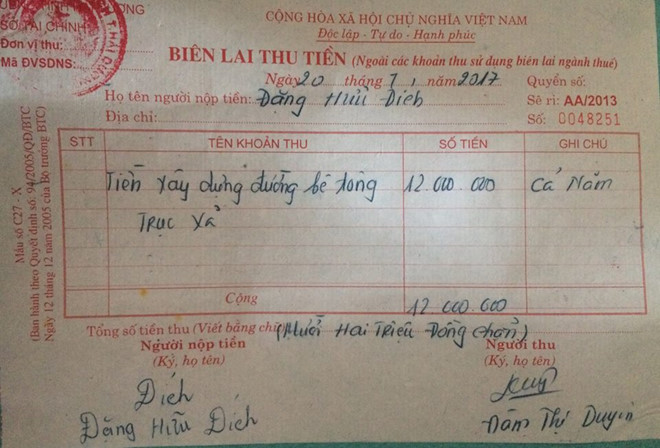 SỞ TÀI CHÍNH
Đơn vị thu:
Mã ĐVSDNS:
CỘNG HÒA XÃ HỘI CHỦ NGHĨA VIỆT NAM
Độc lập - Tự do - Hạnh phúc
BIÊN LAI THU TIỀN (Ngoài các khoản thu sử dụng biên lai ngành thuế)
Ngày 20 tháng 7 năm 2017 Quyển số:
Họ tên người nộp tiền: Đặng Hữu Dích Sê ri: AA/2013
Địa chỉ: Số: 0048251
Mẫu số C27 - X
(Ban hành theo Quyết định số: 94/2005/QĐ/BTC
Ngày 12 tháng 12 năm 2005 của Bộ trưởng BTC)
STT TÊN KHOẢN THU SỐ TIỀN GHI CHÚ
Tiền xây dựng đường bê tông 12.000.000 Cả Năm
Trục xã
Cộng 12 000.000
Tổng số tiền thu (Viết bằng chữ) (Mười Hai Triệu Đồng chẵn)
Người nộp tiền Người thu
(Ký, họ tên) (Ký, họ tên)
Dích
Đặng Hữu Dích Đàm Thị Duyên